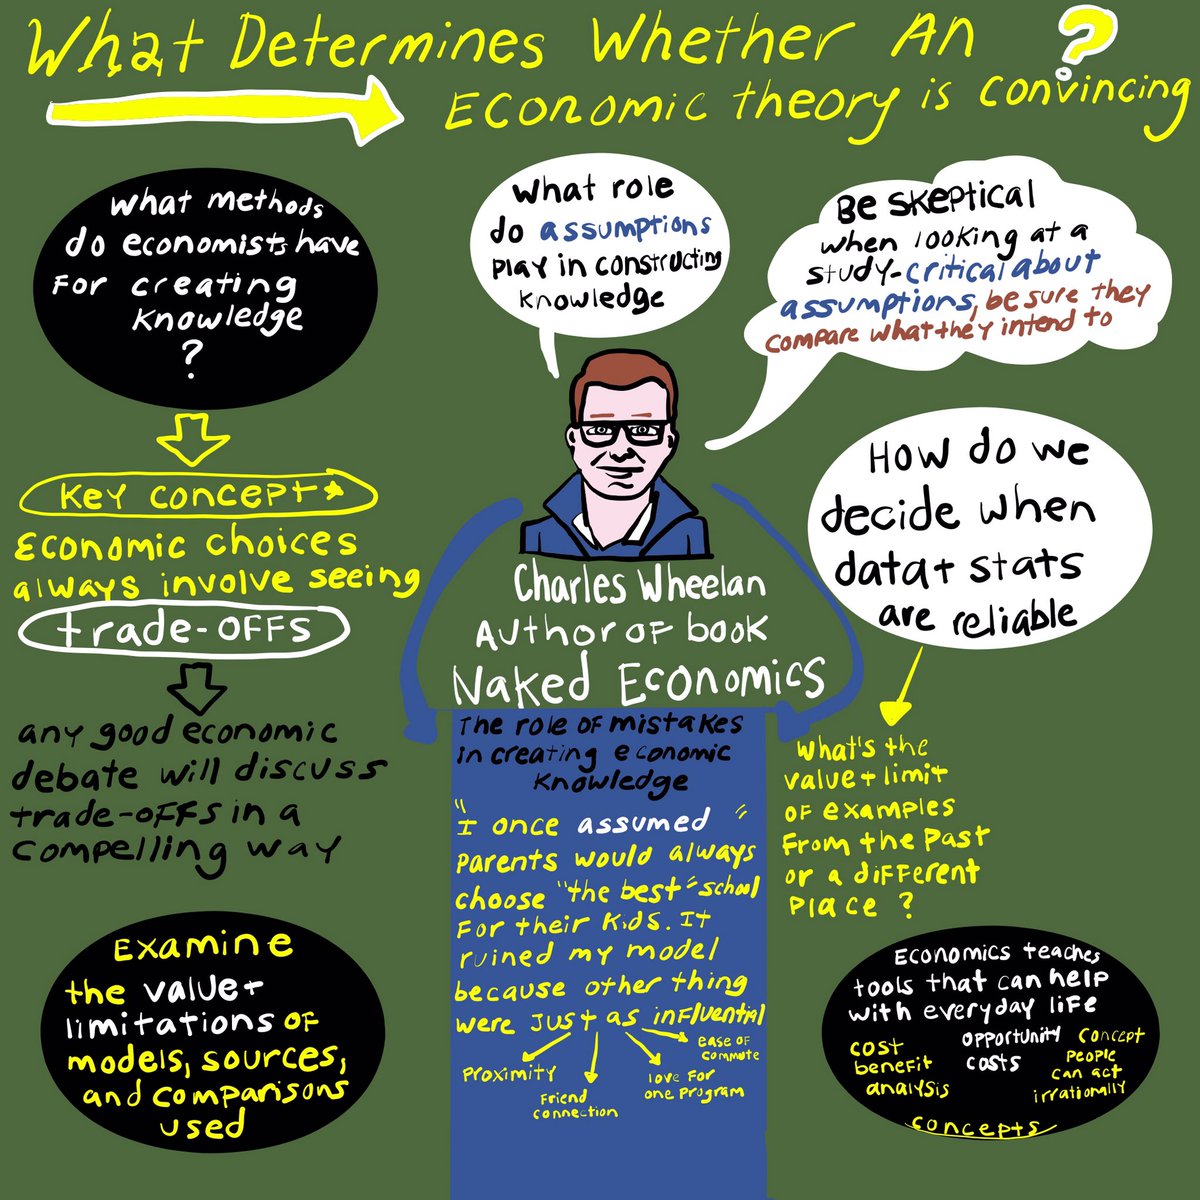 What Determines Whether An ?
Economic theory is convincing
What methods
do economists have
For creating
knowledge
?
Key concept
Economic choices
always involve seeing
trade-offs
any good economic
debate will discuss
trade-offs in a
compelling way
Examine
the value +
limitations of
models, sources,
and comparisons
used
What role
do assumptions
play in constructing
knowledge
Be skeptical
when looking at a
study - critical about
assumptions, be sure they
compare what they intend to
Charles Wheelan
Author of book
Naked Economics
The role of mistakes
in creating economic
knowledge
"I once assumed"
parents would always
choose "the best" school
for their kids. It
ruined my model
because other thing
were just as influential
Proximity
Friend
connection
love for
one program
ease of
commute
How do we
decide when
data + stats
are reliable
What's the
value + limit
of examples
from the past
or a different
place ?
Economics teaches
tools that can help
with everyday life
cost
benefit
analysis
opportunity
costs
concept
people
can act
irrationally
concepts